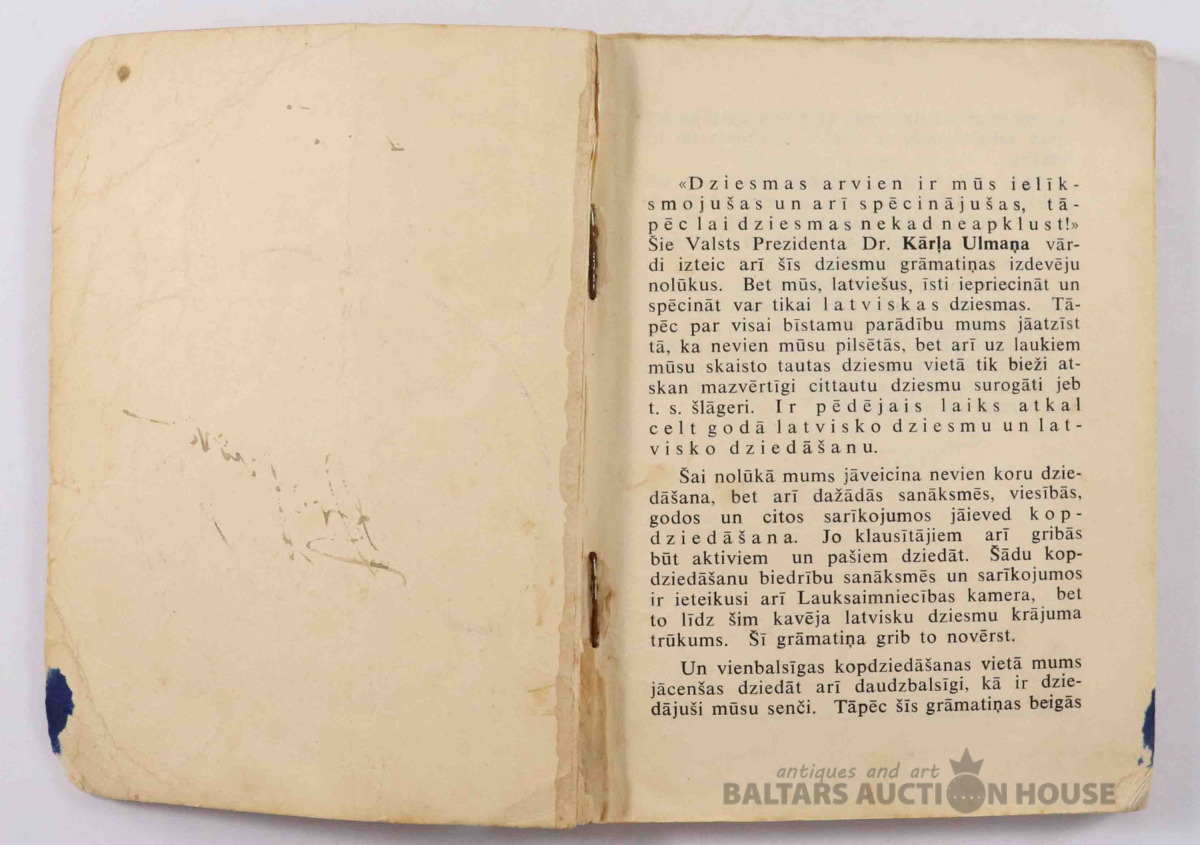 «Dziesmas arvien ir mūs ielīk-
smojušas un arī spēcinājušas, tā-
pēc lai dziesmas nekad neapklust!»
Šie Valsts Prezidenta Dr. Kārļa Ulmaņa vār-
di izteic arī šīs dziesmu grāmatiņas izdevēju
nolūkus. Bet mūs, latviešus, īsti iepriecināt un
spēcināt var tikai latviskas dziesmas. Tā-
pēc par visai bīstamu parādību mums jāatzīst
tā, ka nevien mūsu pilsētās, bet arī uz laukiem
mūsu skaisto tautas dziesmu vietā tik bieži at-
skan mazvērtīgi cittautu dziesmu surogāti jeb
t. s. šlāgeri. Ir pēdējais laiks atkal
celt godā latvisko dziesmu un lat-
visko dziedāšanu.
Šai nolūkā mums jāveicina nevien koru dzie-
dāšana, bet arī dažādās sanāksmēs, viesībās,
godos un citos sarīkojumos jāieved kop-
dziedāšana. Jo klausītājiem arī gribās
būt aktiviem un pašiem dziedāt. Šādu kop-
dziedāšanu biedrību sanāksmēs un sarīkojumos
ir ieteikusi arī Lauksaimniecības kamera, bet
to līdz šim kavēja latvisku dziesmu krājuma
trūkums. Šī grāmatiņa grib to novērst.
Un vienbalsīgas kopdziedāšanas vietā mums
jācenšas dziedāt arī daudzbalsīgi, kā ir dzie-
dājuši mūsu senči. Tāpēc šīs grāmatiņas beigās
antiques and art
BALTARS AUCTION HOUSE